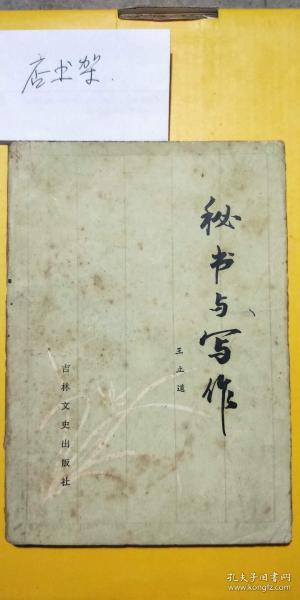 店书架.
秘书与写作
王立道
吉林文史出版社
孔夫子旧书网